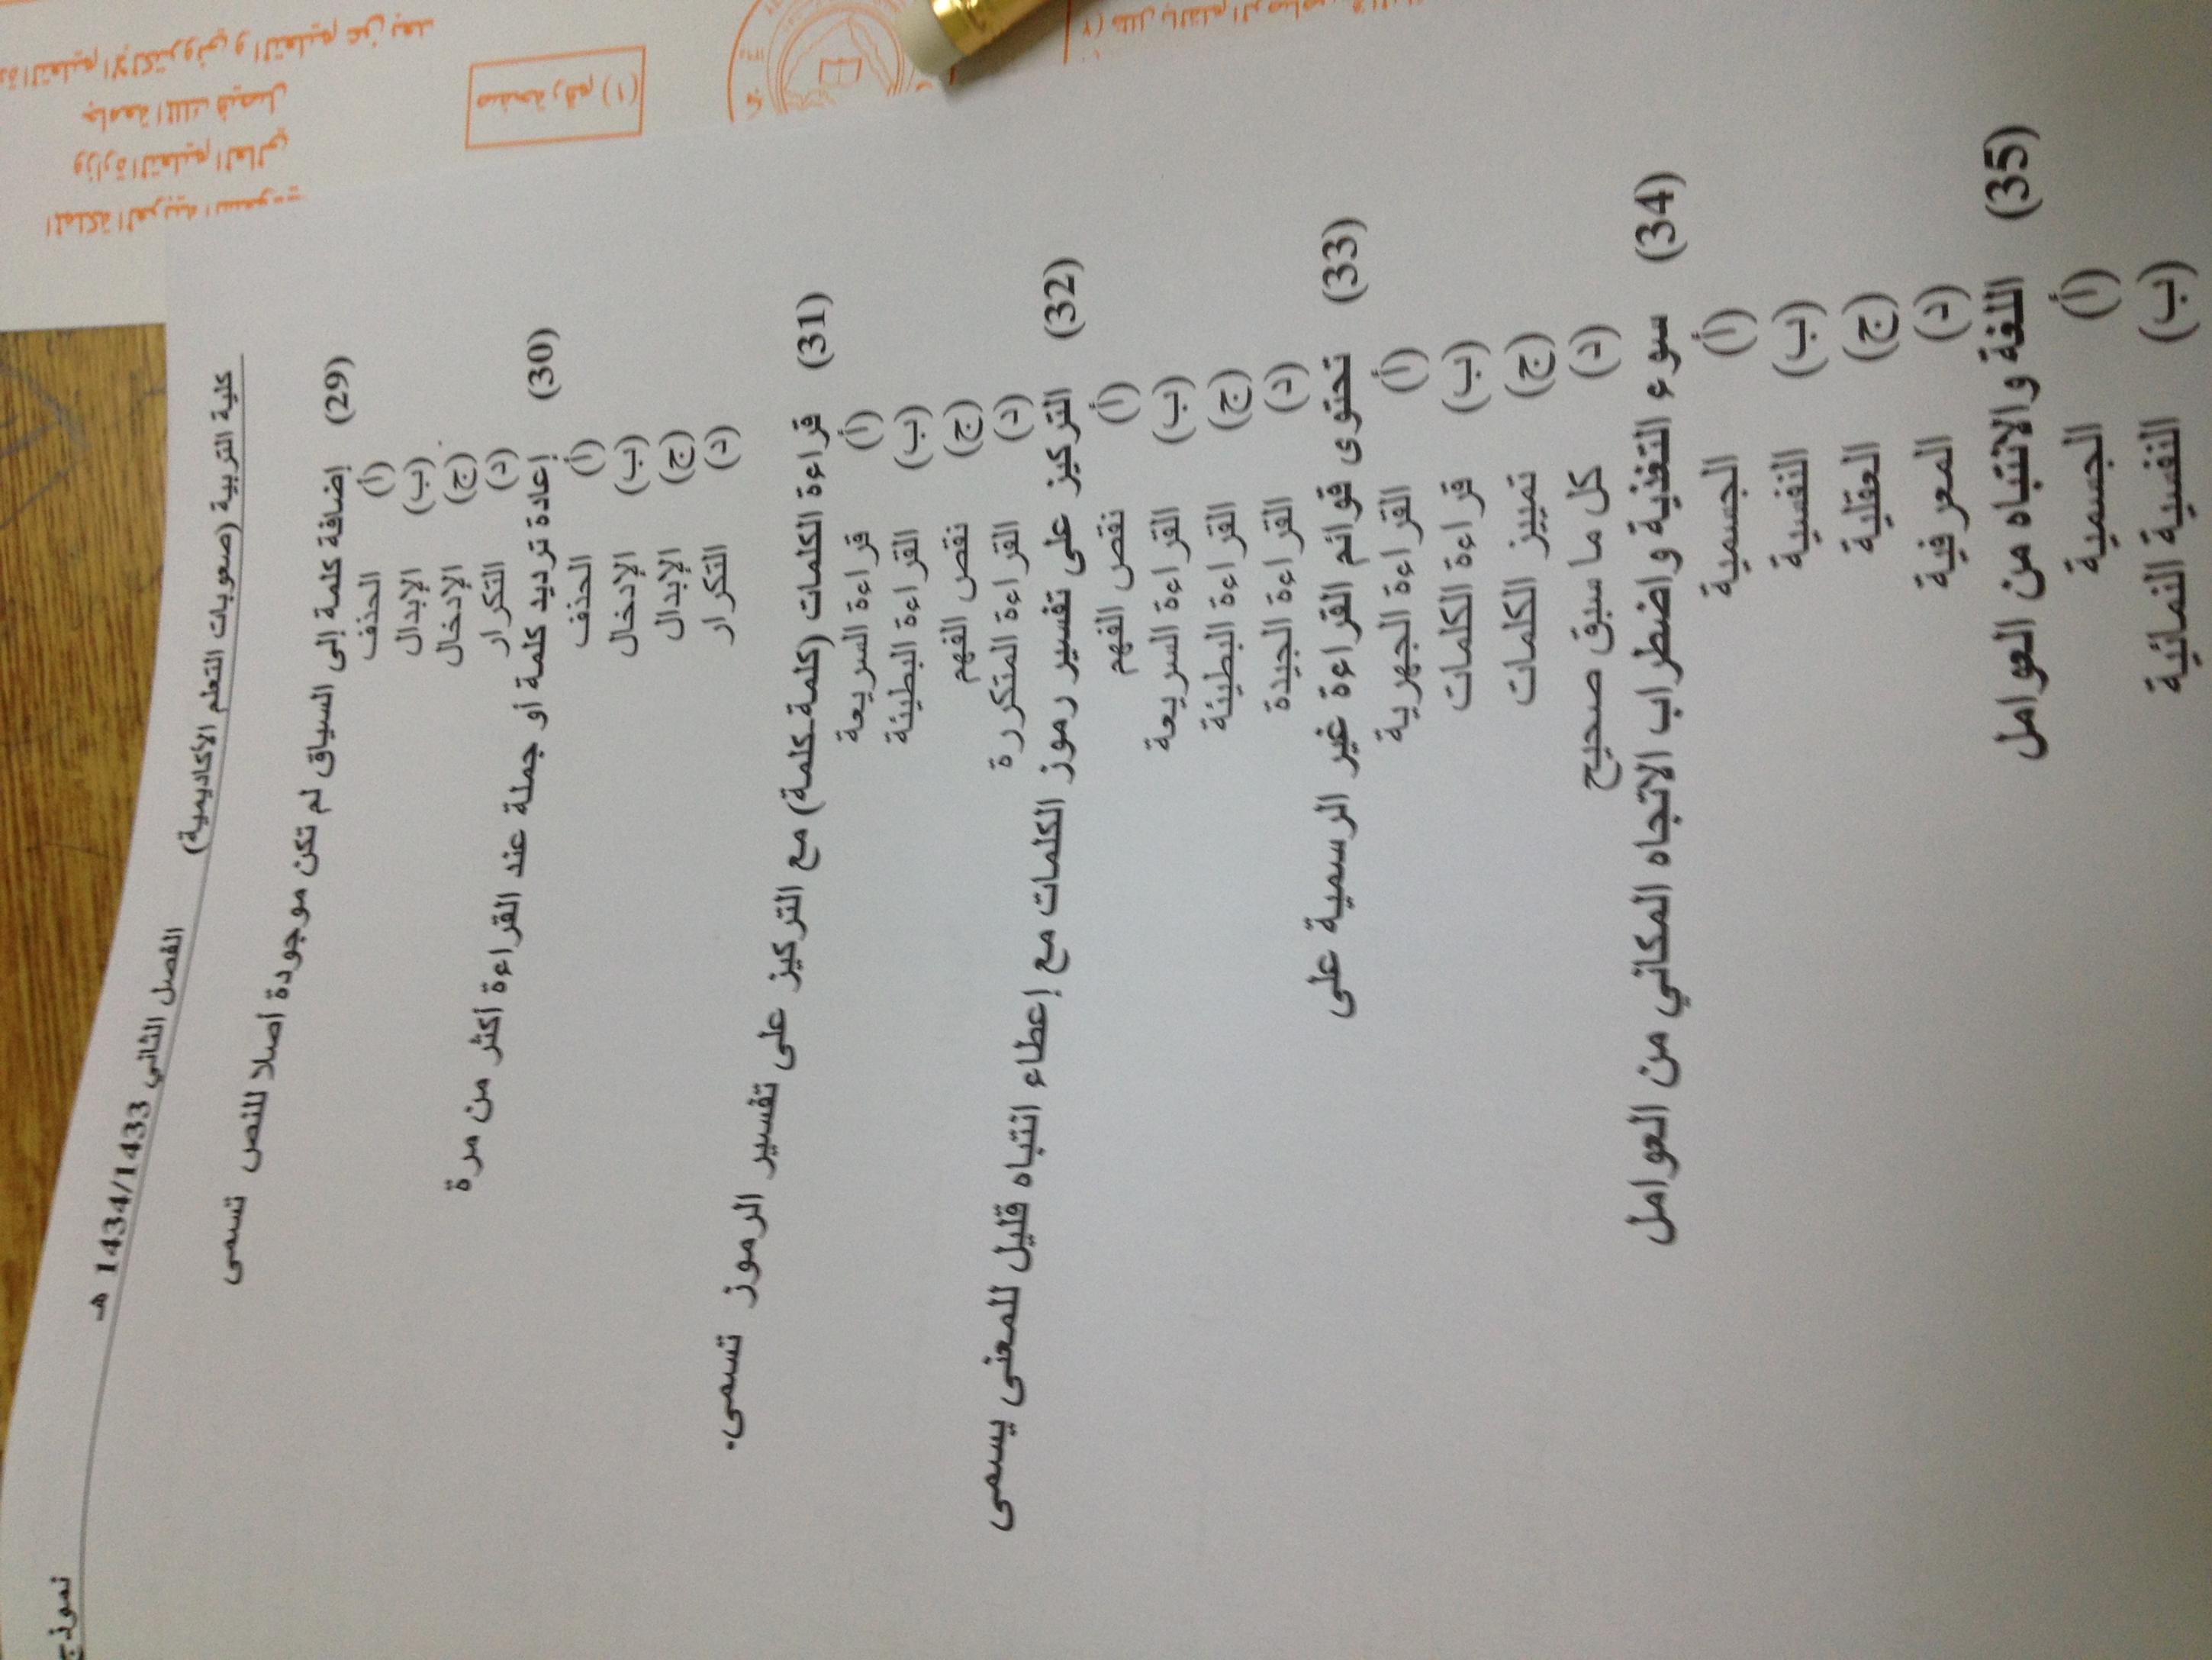 المملكة العربية السعودية
وزارة التعليم العالي
جامعة الملك فيصل
التعليم الإلكتروني و التعليم عن بعد
صفحة رقم (١)
نموذج
كلية التربية (صعوبات التعلم الأكاديمية) الفصل الثاني 1434/1433 هـ
(29) إضافة كلمة إلى السياق لم تكن موجودة أصلا للنص تسمى
(أ) الحذف
(ب) الإبدال
(ج) الإدخال
(د) التكرار
(30) إعادة ترديد كلمة أو جملة عند القراءة أكثر من مرة
(أ) الحذف
(ب) الإدخال
(ج) الإبدال
(د) التكرار
(31) قراءة الكلمات (كلمة-كلمة) مع التركيز على تفسير الرموز تسمى.
(أ) قراءة السريعة
(ب) القراءة البطيئة
(ج) نقص الفهم
(د) القراءة المتكررة
(32) التركيز على تفسير رموز الكلمات مع إعطاء انتباه قليل للمعنى يسمى
(أ) نقص الفهم
(ب) القراءة السريعة
(ج) القراءة البطيئة
(د) القراءة الجيدة
(33) تحتوى قوائم القراءة غير الرسمية على
(أ) القراءة الجهرية
(ب) قراءة الكلمات
(ج) تمييز الكلمات
(د) كل ما سبق صحيح
(34) سوء التغذية واضطراب الاتجاه المكاني من العوامل
(أ) الجسمية
(ب) النفسية
(ج) العقلية
(د) المعرفية
(35) اللغة والانتباه من العوامل
(أ) الجسمية
(ب) النفسية النمائية